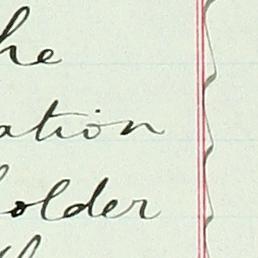 he
ation
holder